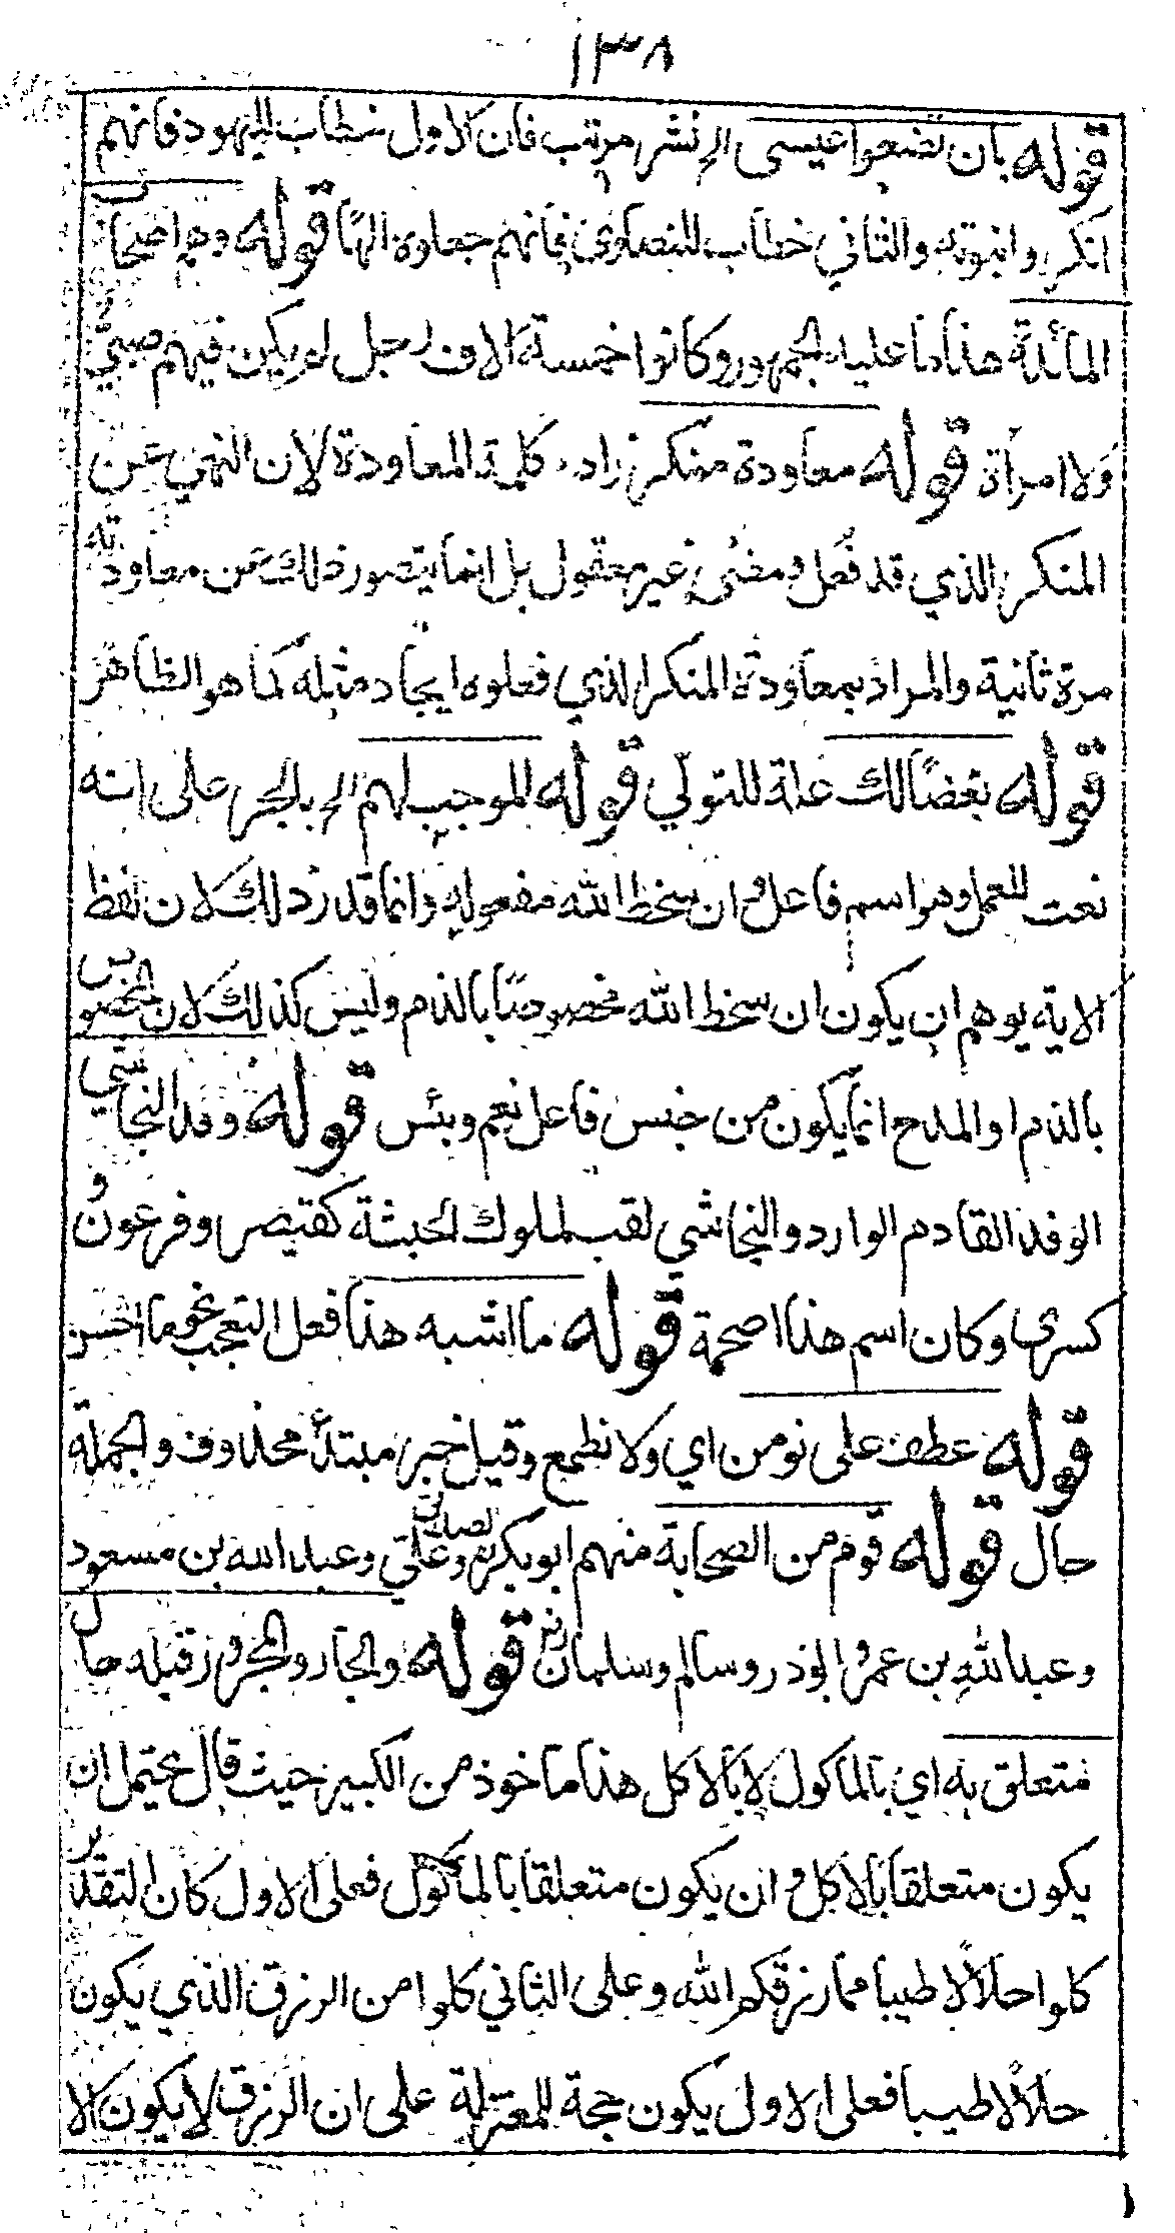 ١٣٨
قوله بان تضعوا عيسى الخ نشر مرتب فان الاول خطاب لليهود فانهم
انكروا نبوته والثاني خطاب للنصارى فانهم جعلوه الها قوله وهم اصحاب
المائدة هذا ما عليه الجمهور وكانوا خمسة الاف رجل لم يكن فيهم صبي
ولا امرأة قوله معاودة منكر زاد كلمة المعاودة لان النهي عن
المنكر الذي قد فعل ومضى غير معقول بل انما يتصور ذلك عن معاودته
مرة ثانية والمراد بمعاودة المنكر الذي فعلوه ايجاد مثله كما هو الظاهر
قوله بغضا لك علة للتولي قوله الموجب لهم الخ بالجر على انه
نعت للعمل وهو اسم فاعل وان سخط الله مفعوله وانما قدر ذلك لان لفظ
الاية يوهم ان يكون ان سخط الله مخصوصا بالذم وليس كذلك لان المخصوص
بالذم او المدح انما يكون من جنس فاعل نعم وبئس قوله وفد النجاشي
الوفد القادم الوارد والنجاشي لقب لملوك الحبشة كقيصر وفرعون و
كسرى وكان اسم هذا اصحمة قوله ما اشبه هذا فعل التعجب نحو ما احسن
قوله عطف على نومن اي ولا نطمع وقيل خبر مبتدأ محذوف والجملة
حال قوله قوم من الصحابة منهم ابو بكر الصديق وعلي وعبد الله بن مسعود
وعبد الله بن عمر وابو ذر وسالم وسلمان قوله والجار والمجرور قبله حال
متعلق به اي بالماكول لا بالاكل هذا ماخوذ من الكبير حيث قال يحتمل ان
يكون متعلقا بالاكل وان يكون متعلقا بالماكول فعلى الاول كان التقدير
كلوا حلالا طيبا مما رزقكم الله وعلى الثاني كلوا من الرزق الذي يكون
حلالا طيبا فعلى الاول يكون حجة للمعتزلة على ان الرزق لا يكون الا